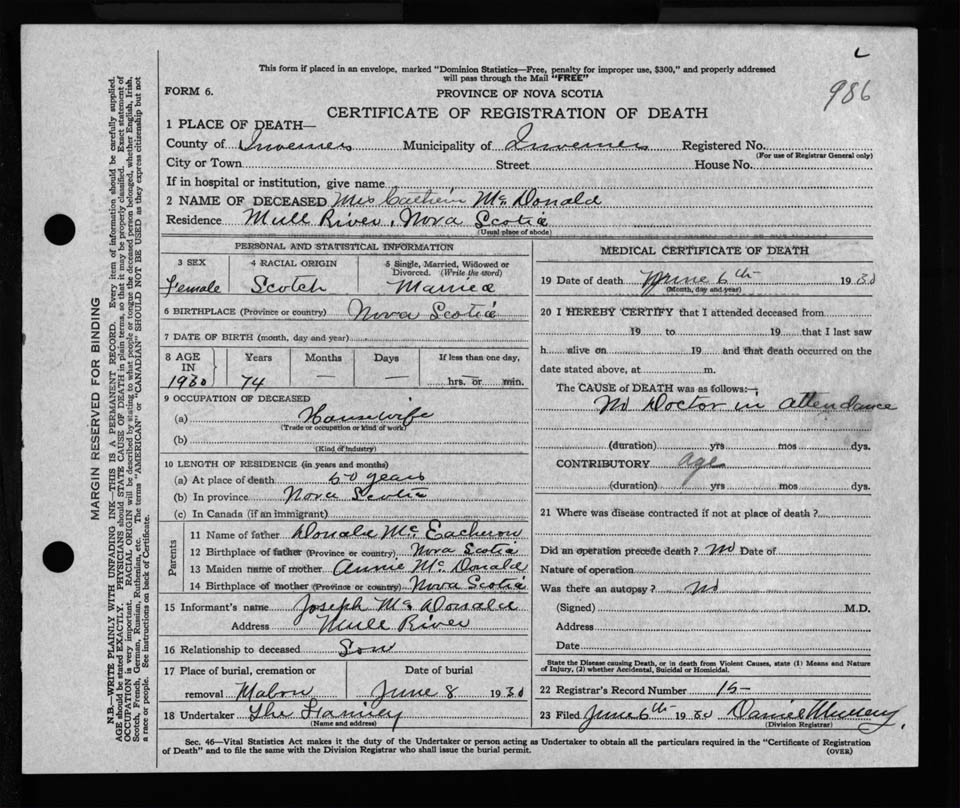 L
986
This form if placed in an envelope, marked "Dominion Statistics—Free, penalty for improper use, $300," and properly addressed
will pass through the Mail "FREE"
FORM 6.
PROVINCE OF NOVA SCOTIA
CERTIFICATE OF REGISTRATION OF DEATH
1 PLACE OF DEATH—
County of Inverness Municipality of Inverness Registered No.
(For use of Registrar General only)
City or Town Street House No.
If in hospital or institution, give name
2 NAME OF DECEASED Mrs Cathein Mc Donald
Residence Mull River, Nova Scotia
(Usual place of abode)
PERSONAL AND STATISTICAL INFORMATION
3 SEX 4 RACIAL ORIGIN 5 Single, Married, Widowed or Divorced. (Write the word)
Female Scotch Married
6 BIRTHPLACE (Province or country) Nova Scotia
7 DATE OF BIRTH (month, day and year)
8 AGE IN Years Months Days If less than one day,
1930 74 — — hrs. or min.
9 OCCUPATION OF DECEASED
(a) Housewife
(Trade or occupation or kind of work)
(b)
(Kind of industry)
10 LENGTH OF RESIDENCE (in years and months)
(a) At place of death 50 years
(b) In province Nova Scotia
(c) In Canada (if an immigrant)
Parents
11 Name of father Donald Mc Eachern
12 Birthplace of father (Province or country) Nova Scotia
13 Maiden name of mother Annie Mc Donald
14 Birthplace of mother (Province or country) Nova Scotia
15 Informant's name Joseph Mc Donald
Address Mull River
16 Relationship to deceased Son
17 Place of burial, cremation or Date of burial
removal Mabou June 8 1930
18 Undertaker The Family
(Name and address)
MEDICAL CERTIFICATE OF DEATH
19 Date of death June 6th 1930
(Month, day and year)
20 I HEREBY CERTIFY that I attended deceased from
19 to 19 that I last saw
h alive on 19 and that death occurred on the
date stated above, at m.
The CAUSE of DEATH was as follows:—
No Doctor in attendance
(duration) yrs mos dys.
CONTRIBUTORY age
(duration) yrs. mos dys.
21 Where was disease contracted if not at place of death?
Did an operation precede death? No Date of
Nature of operation
Was there an autopsy? No
(Signed) M.D.
Address
Date
State the Disease causing Death, or in death from Violent Causes, state (1) Means and Nature
of Injury, (2) whether Accidental, Suicidal or Homicidal.
22 Registrar's Record Number 15
23 Filed June 6th 1930 Daniel
(Division Registrar)
Sec. 46—Vital Statistics Act makes it the duty of the Undertaker or person acting as Undertaker to obtain all the particulars required in the "Certificate of Registration
of Death" and to file the same with the Division Registrar who shall issue the burial permit. (OVER)
MARGIN RESERVED FOR BINDING
N.B.—WRITE PLAINLY WITH UNFADING INK—THIS IS A PERMANENT RECORD. Every item of information should be carefully supplied.
AGE should be stated EXACTLY. PHYSICIANS should STATE CAUSE OF DEATH in plain terms, so that it may be properly classified. Exact statement of
OCCUPATION is very important. RACIAL ORIGIN will be described by stating to what people or tongue the deceased person belonged, whether English, Irish,
Scotch, French, German, Russian, Ruthenian, etc. The terms "AMERICAN" or "CANADIAN" SHOULD NOT BE USED as they express citizenship but not
a race or people. See instructions on back of Certificate.